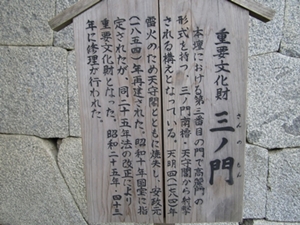 重要文化財
三ノ門
さんのもん
本壇における第三番目の門で高麗門の
形式を持つ。三ノ門南櫓・天守閣から射撃
される構えとなっている。天明四(一七八四)年
雷火のため天守閣とともに焼失し、安政元
(一八五四)年再建された。昭和十年国宝に指
定されたが、同二十五年法の改正により
重要文化財となった。昭和二十五年・四十三
年に修理が行われた。